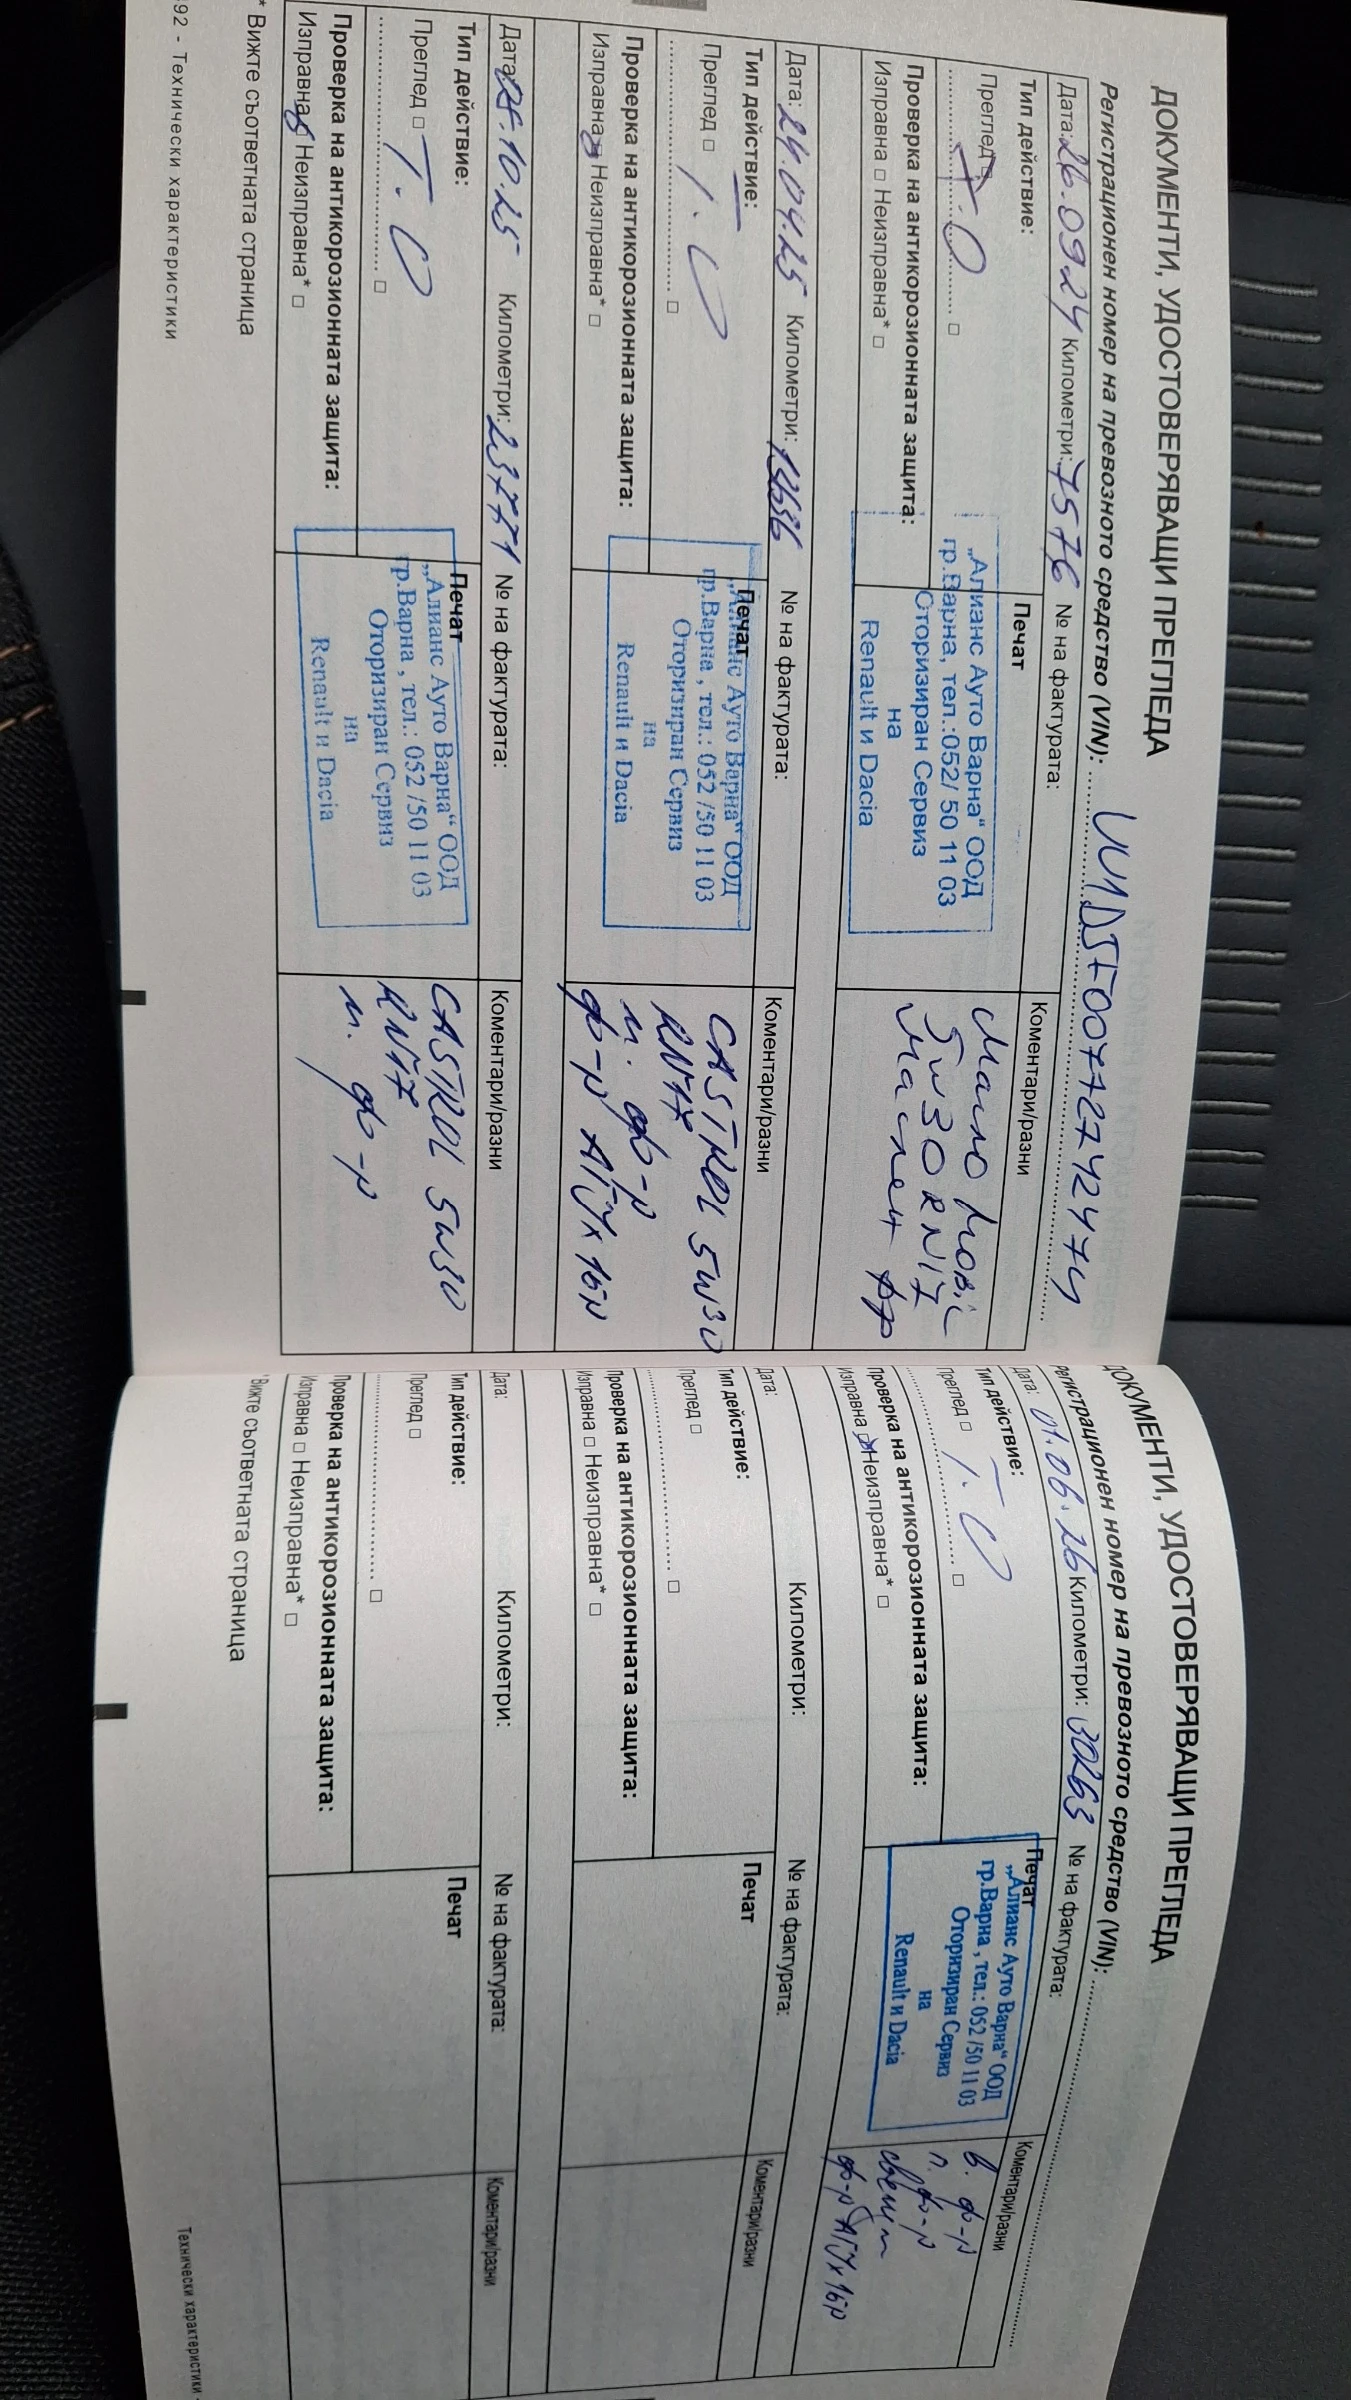 ДОКУМЕНТИ, УДОСТОВЕРЯВАЩИ ПРЕГЛЕДА
Регистрационен номер на превозното средство (VIN): ..........
Дата: 26.0924 Километри: 7576 № на фактурата:
Тип действие:
Преглед □ Т.О
.................... □
Проверка на антикорозионната защита:
Изправна □ Неизправна* □
Печат
„Алианс Ауто Варна“ ООД
гр.Варна, тел.:052/ 50 11 03
Оторизиран Сервиз
на
Renault и Dacia
Коментари/разни
Масло Mobil
5w30 RN17
Маслен фр
Дата: 24.04.25 Километри: № на фактурата:
Тип действие:
Преглед □ Т.О
.................... □
Проверка на антикорозионната защита:
Изправна □ Неизправна* □
Печат
„Алианс Ауто Варна“ ООД
гр.Варна , тел.: 052 /50 11 03
Оторизиран Сервиз
на
Renault и Dacia
Коментари/разни
CASTROL 5W30
RN17
м. ф-р
ф-р АГУ х 1бр
Дата: .10.25 Километри: 23771 № на фактурата:
Тип действие:
Преглед □ Т.О
.................... □
Проверка на антикорозионната защита:
Изправна □ Неизправна* □
Печат
„Алианс Ауто Варна“ ООД
гр.Варна , тел.: 052 /50 11 03
Оторизиран Сервиз
на
Renault и Dacia
Коментари/разни
CASTROL 5W30
RN17
м. ф-р
* Вижте съответната страница
92 - Технически характеристики
ДОКУМЕНТИ, УДОСТОВЕРЯВАЩИ ПРЕГЛЕДА
Регистрационен номер на превозното средство (VIN): ..........
Дата: 01.06.26 Километри: 30263 № на фактурата:
Тип действие:
Преглед □ Т.О
.................... □
Проверка на антикорозионната защита:
Изправна □ Неизправна* □
Печат
„Алианс Ауто Варна“ ООД
гр.Варна , тел.: 052 /50 11 03
Оторизиран Сервиз
на
Renault и Dacia
Коментари/разни
в. ф-р
п. ф-р
свещи
ф-р АГУ х 1бр
Дата: Километри: № на фактурата:
Тип действие:
Преглед □
.................... □
Проверка на антикорозионната защита:
Изправна □ Неизправна* □
Печат
Коментари/разни
Дата: Километри: № на фактурата:
Тип действие:
Преглед □
.................... □
Проверка на антикорозионната защита:
Изправна □ Неизправна* □
Печат
Коментари/разни
*Вижте съответната страница
Технически характеристики -